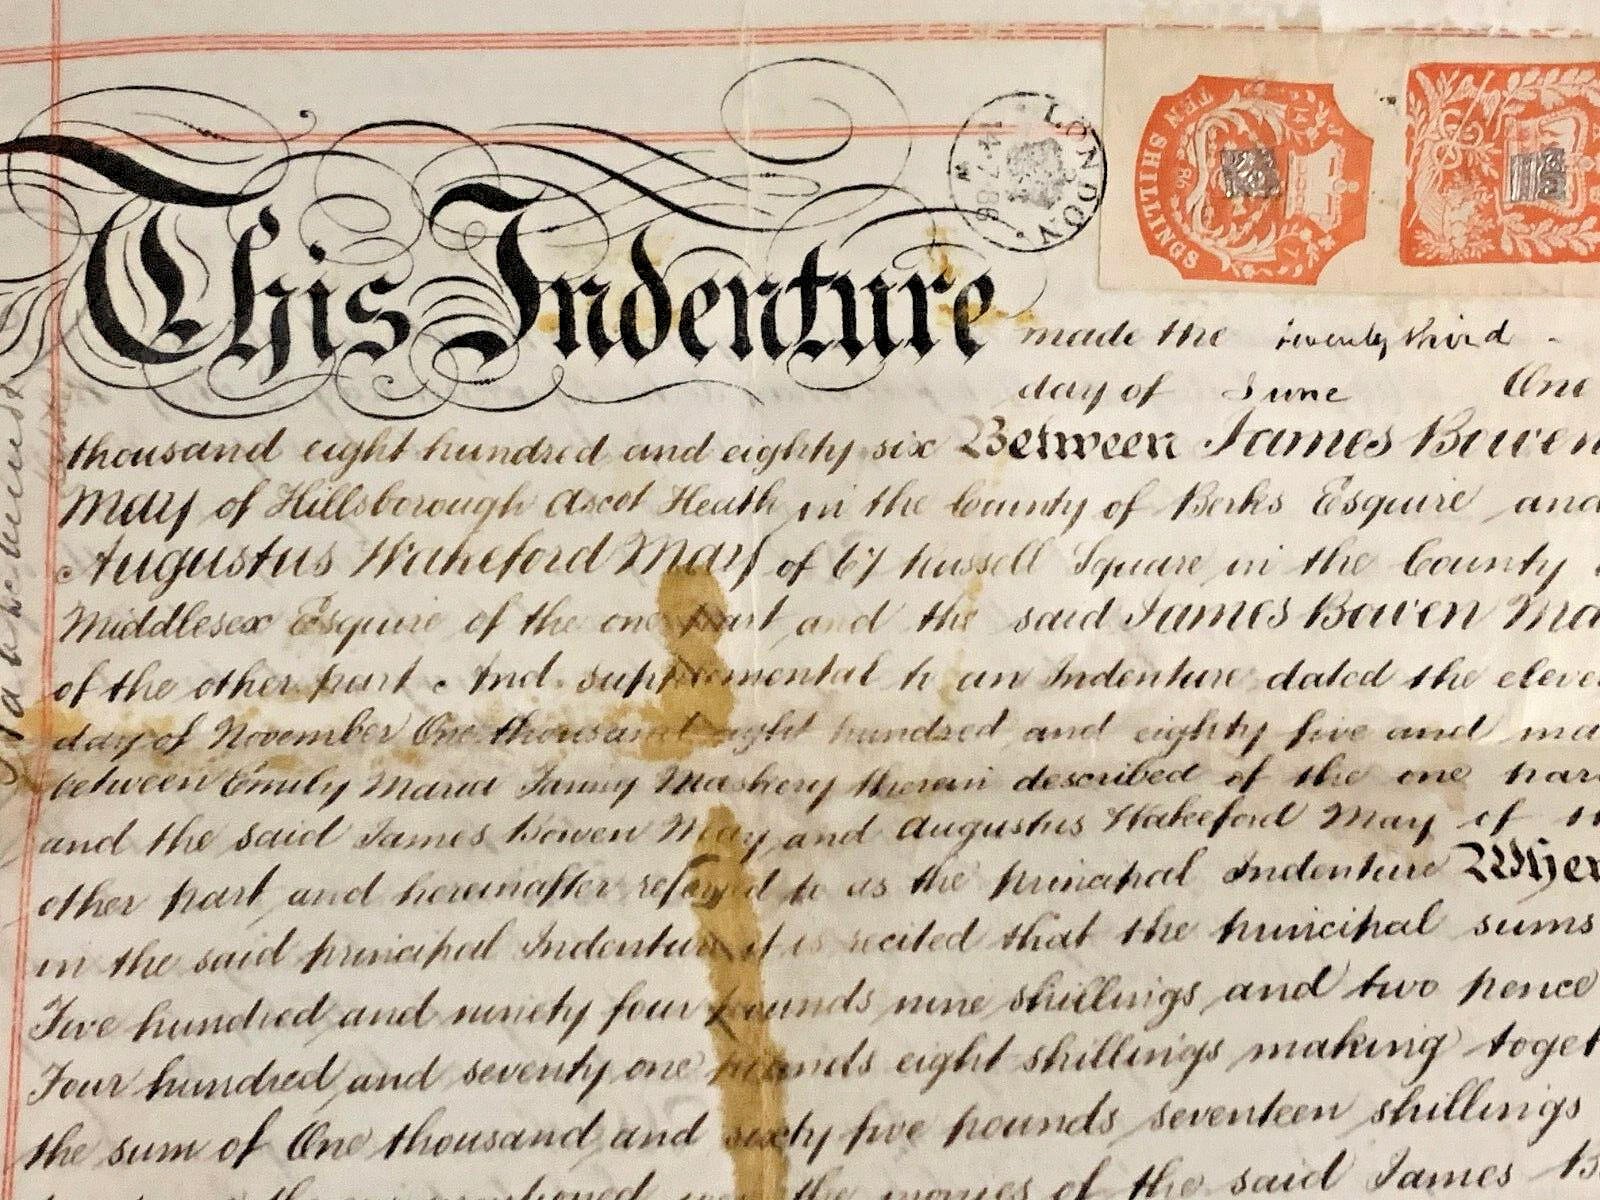 LONDON
14.7.86
TEN SHILLINGS
This Indenture made the twenty third
day of June One
thousand eight hundred and eighty six Between James Bowen
May of Hillsborough Ascot Heath in the County of Berks Esquire and
Augustus Wakeford May of 67 Russell Square in the County
Middlesex Esquire of the one part and the said James Bowen Ma
of the other part And supplemental to an Indenture dated the eleve
day of November One thousand eight hundred and eighty five and ma
between Emily Maria Fanny Maskery therein described of the one par
and the said James Bowen May and Augustus Wakeford May of
other part and hereinafter referred to as the principal Indenture Wher
in the said principal Indenture it is recited that the principal sums
Five hundred and ninety four pounds nine shillings and two pence
Four hundred and seventy one pounds eight shillings making toget
the sum of One thousand and sixty five pounds seventeen shillings
mentioned were the monies of the said James B